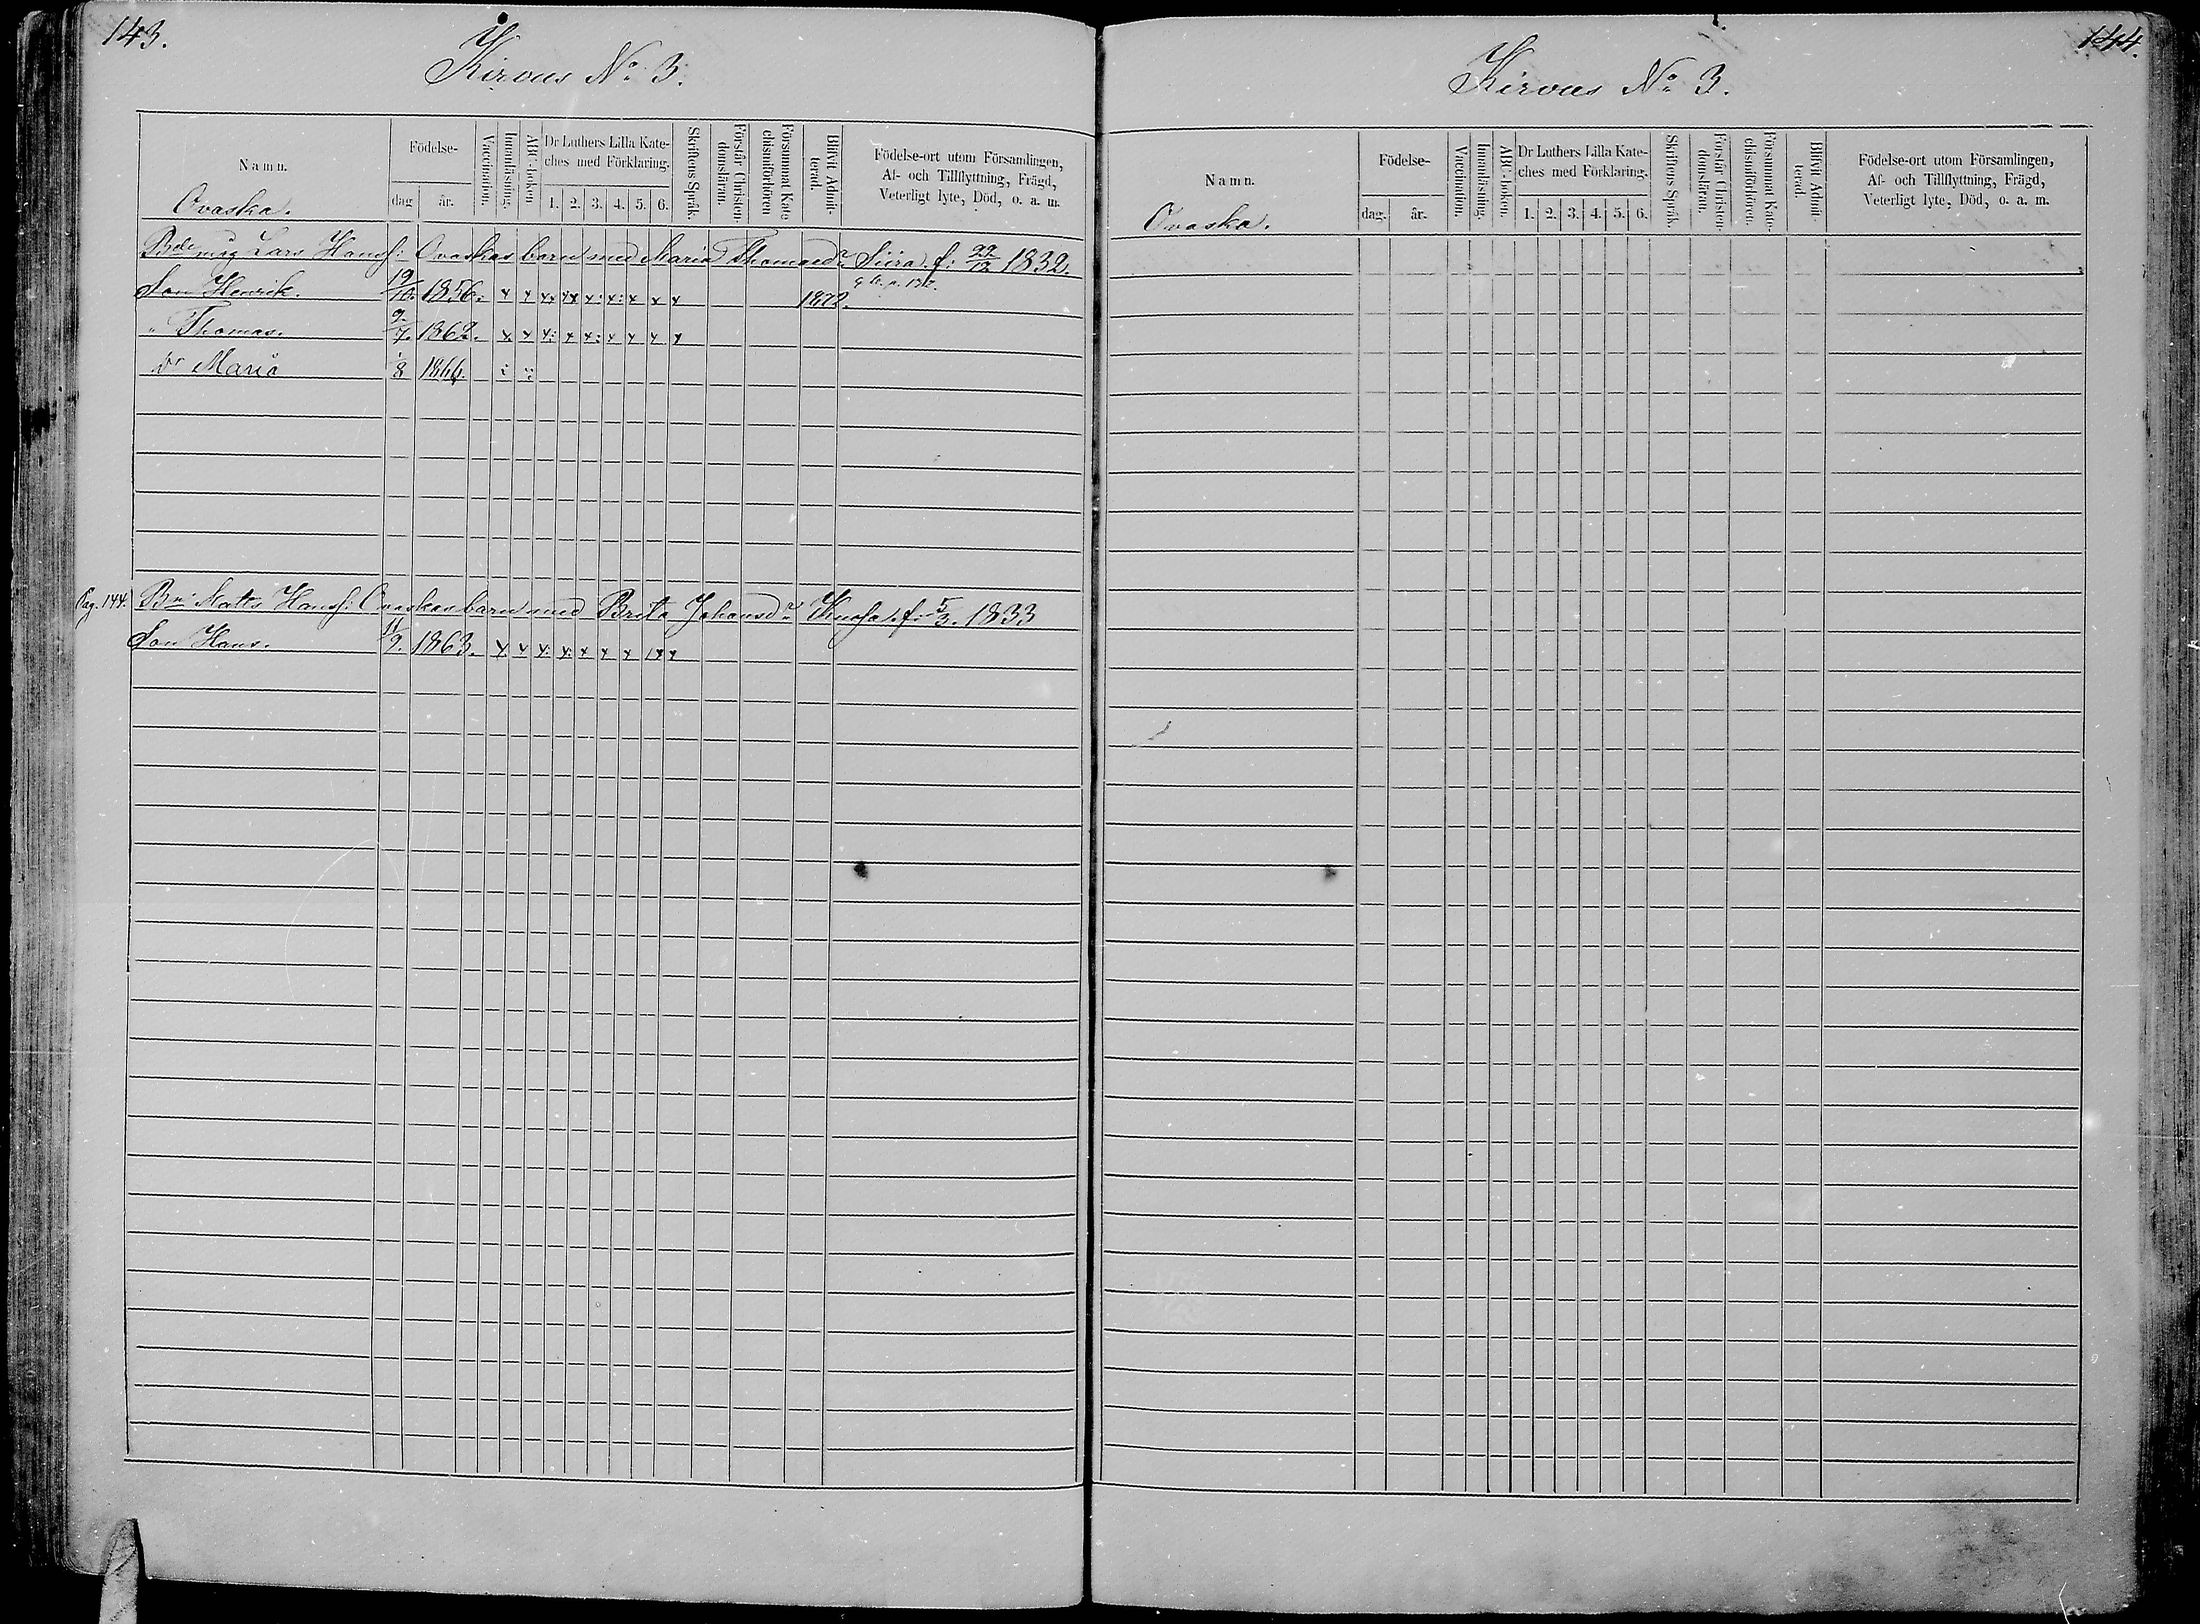 143.
Kirvus No 3.
Namn.
Födelse-
dag
år.
Vaccination.
Innanläsning.
ABC-boken
Dr Luthers Lilla Kate-
ches med Förklaring.
1. 2. 3. 4. 5. 6.
Skriftens Språk.
Förstår Christen-
domsläran.
Försummat Kate
chismiförhören
Blifvit Admit-
terad.
Födelse-ort utom Församlingen,
Af- och Tillflyttning, Frägd,
Veterligt lyte, Död, o. a. m.
Ovaska.
Lars Hansf: Ovaskas barn med Maria Thomasdr Siira. f: 22/12 1832.
Son Henrik. 19/10. 1856. 1872.
" Thomas. 9/7. 1862.
Dr Maria 8 1866.
Pag. 144. Bn Matts Hansf: Ovaskas barn med Brita Johansdr f: 5/3. 1833
Son Hans. 11/9. 1863.
144.
Kirvus No 3.
Namn.
Födelse-
dag.
år.
Vaccination.
Innanläsning.
ABC-boken.
Dr Luthers Lilla Kate-
ches med Förklaring.
1. 2. 3. 4. 5. 6.
Skriftens Språk.
Förstår Christen-
domsläran.
Försummat Kate-
chismiförhören.
Blifvit Admit-
terad.
Födelse-ort utom Församlingen,
Af- och Tillflyttning, Frägd,
Veterligt lyte, Död, o. a. m.
Ovaska.